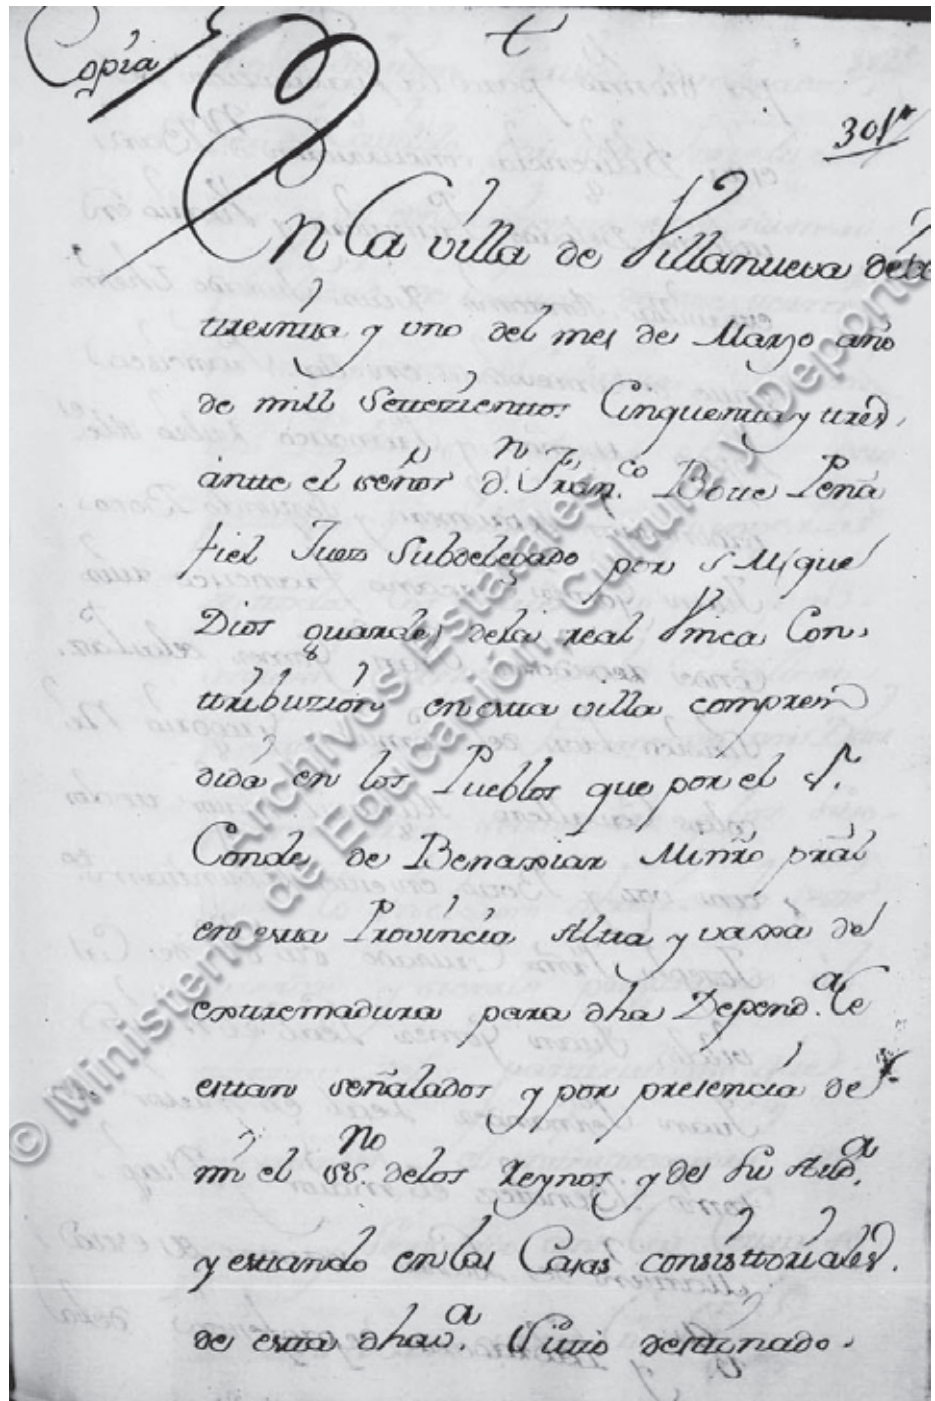 Copia
+
301r
En la villa de Villanueva
treintta y uno del mes de Marzo año
de mill Settezienttos Cinquentta y tres,
ántte el señor D.n Fran.co Botte Peña
fiel Juez Subdelegado por S M (que
Dios guarde) de la real Vnica Con,
ttribuzion en estta villa compren
dida en los Pueblos que por el S.r
Conde de Benaxiar Minro pral
en estta Provincia Altta y vaxa de
exttremadura para dha Depend.a le
esttan señalados y por presencia de
mi el ss.no de los Reynos y de su Aud.a
y esttando en las Casas consisttoriales.
de estta dha v.a Sittio desttinado.
© Ministerio de Educación, Cultura y Deporte
Archivos Estatales